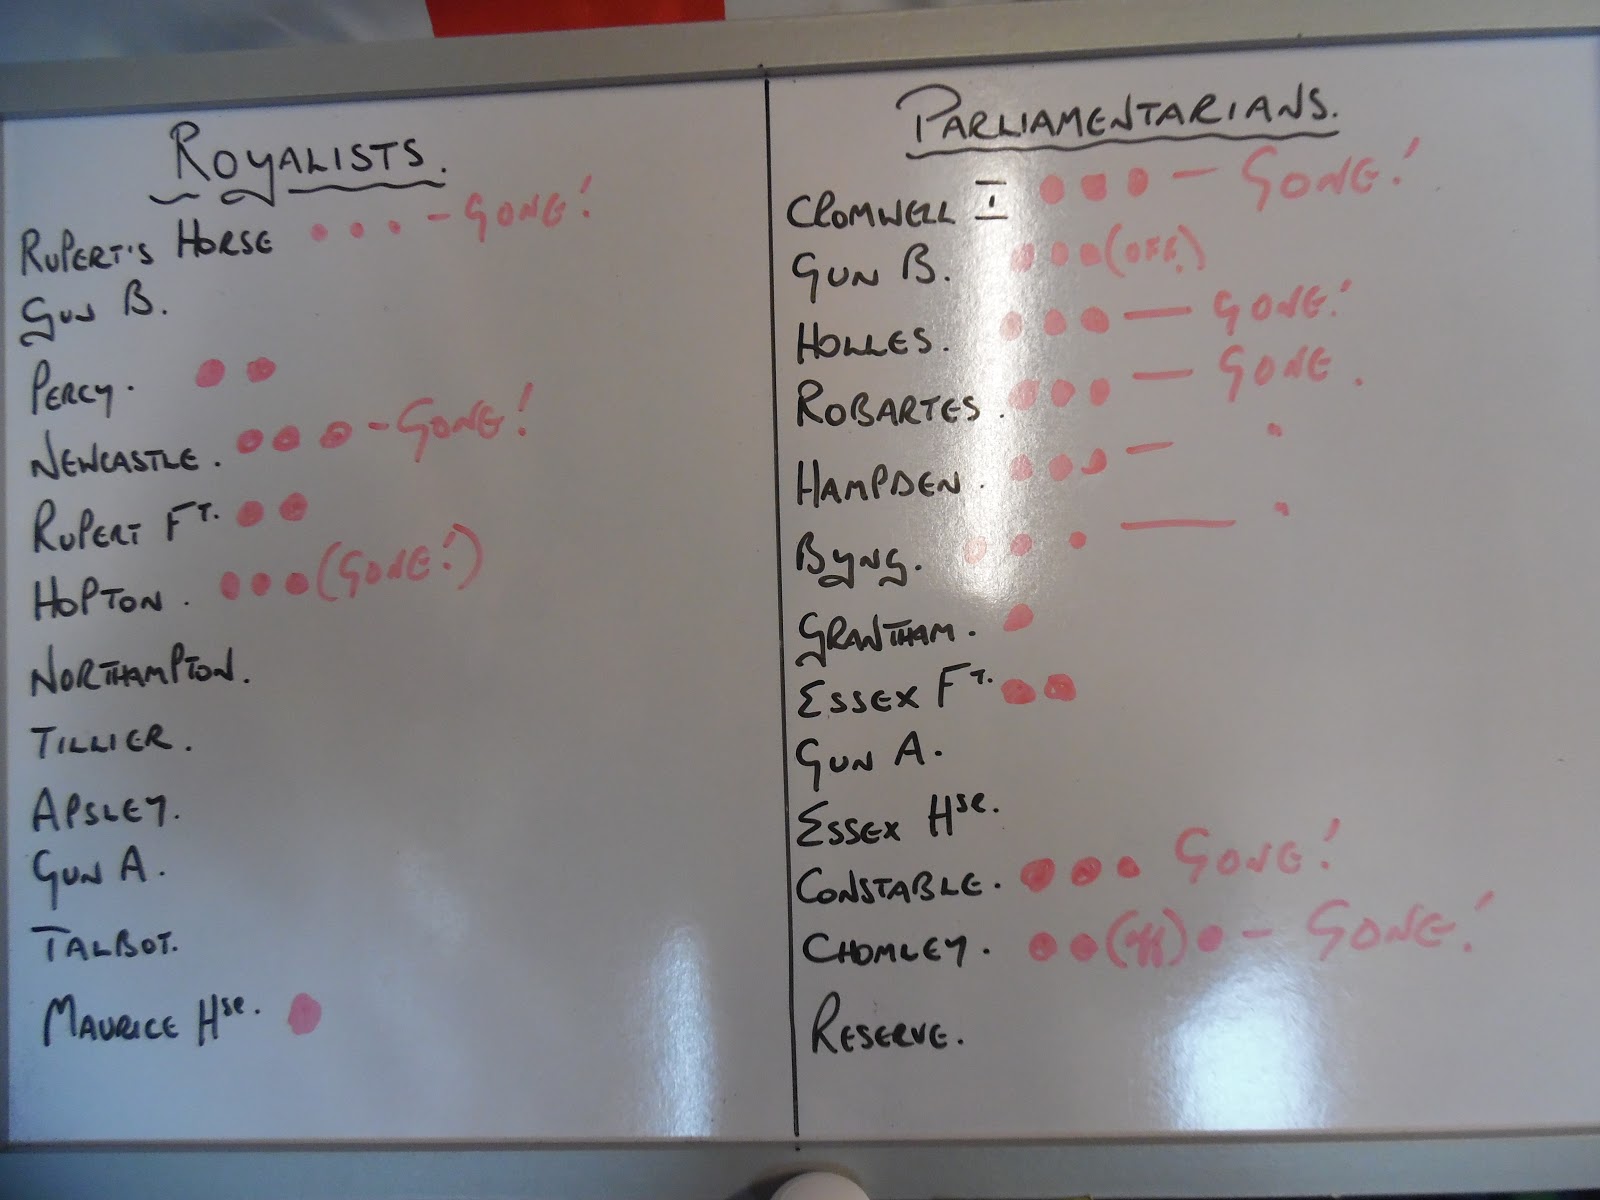 ROYALISTS.
RUPERT'S HORSE ● ● ● - GONE!
GUN B.
PERCY. ● ●
NEWCASTLE. ● ● ● - GONE!
RUPERT FT. ● ●
HOPTON. ● ● ● (GONE!)
NORTHAMPTON.
TILLIER.
APSLEY.
GUN A.
TALBOT.
MAURICE HSE. ●
PARLIAMENTARIANS.
CROMWELL I ● ● ● - GONE!
GUN B. ● ● ● (OFF.)
HOLLES. ● ● ● — GONE!
ROBARTES. ● ● ● — GONE.
HAMPDEN. ● ● ● —
BYNG. ● ● ● —
GRANTHAM. ●
ESSEX FT. ● ●
GUN A.
ESSEX HSE.
CONSTABLE. ● ● ● GONE!
CHOMLEY. ● ● (off) ● - GONE!
RESERVE.